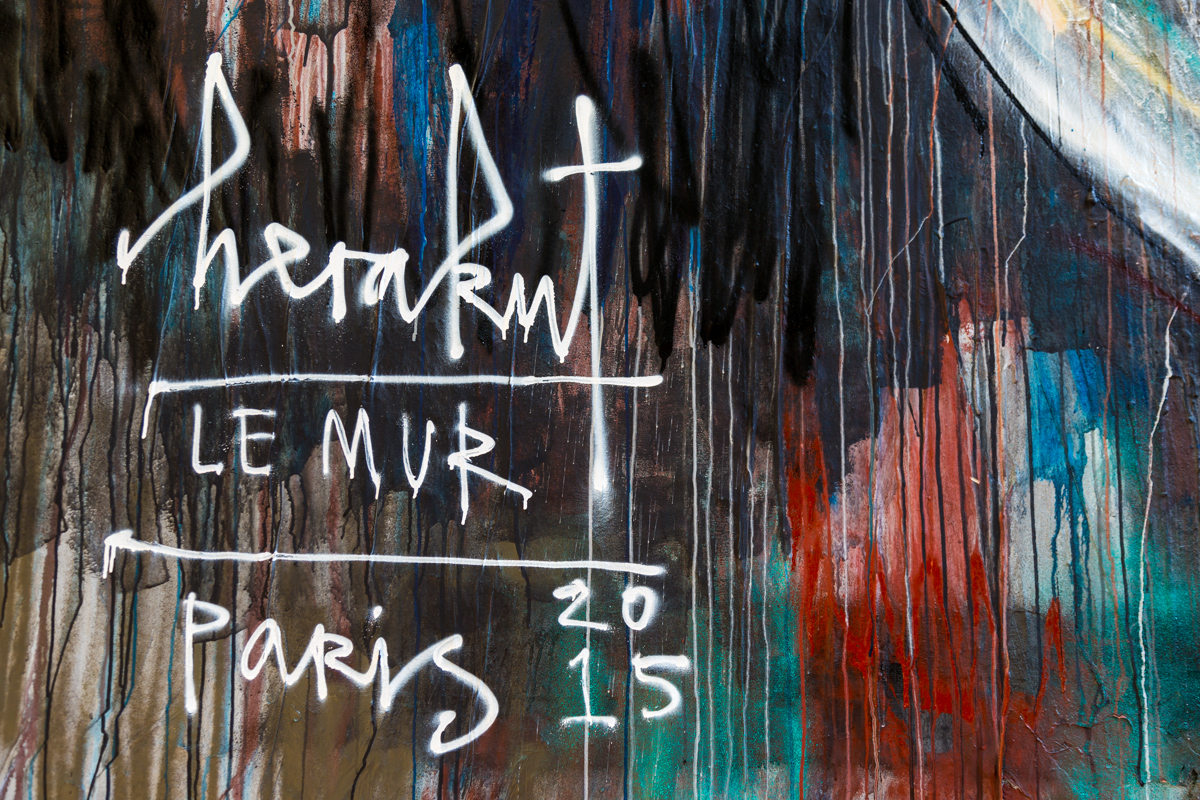 herakut
LE MUR
PARiS
20
15